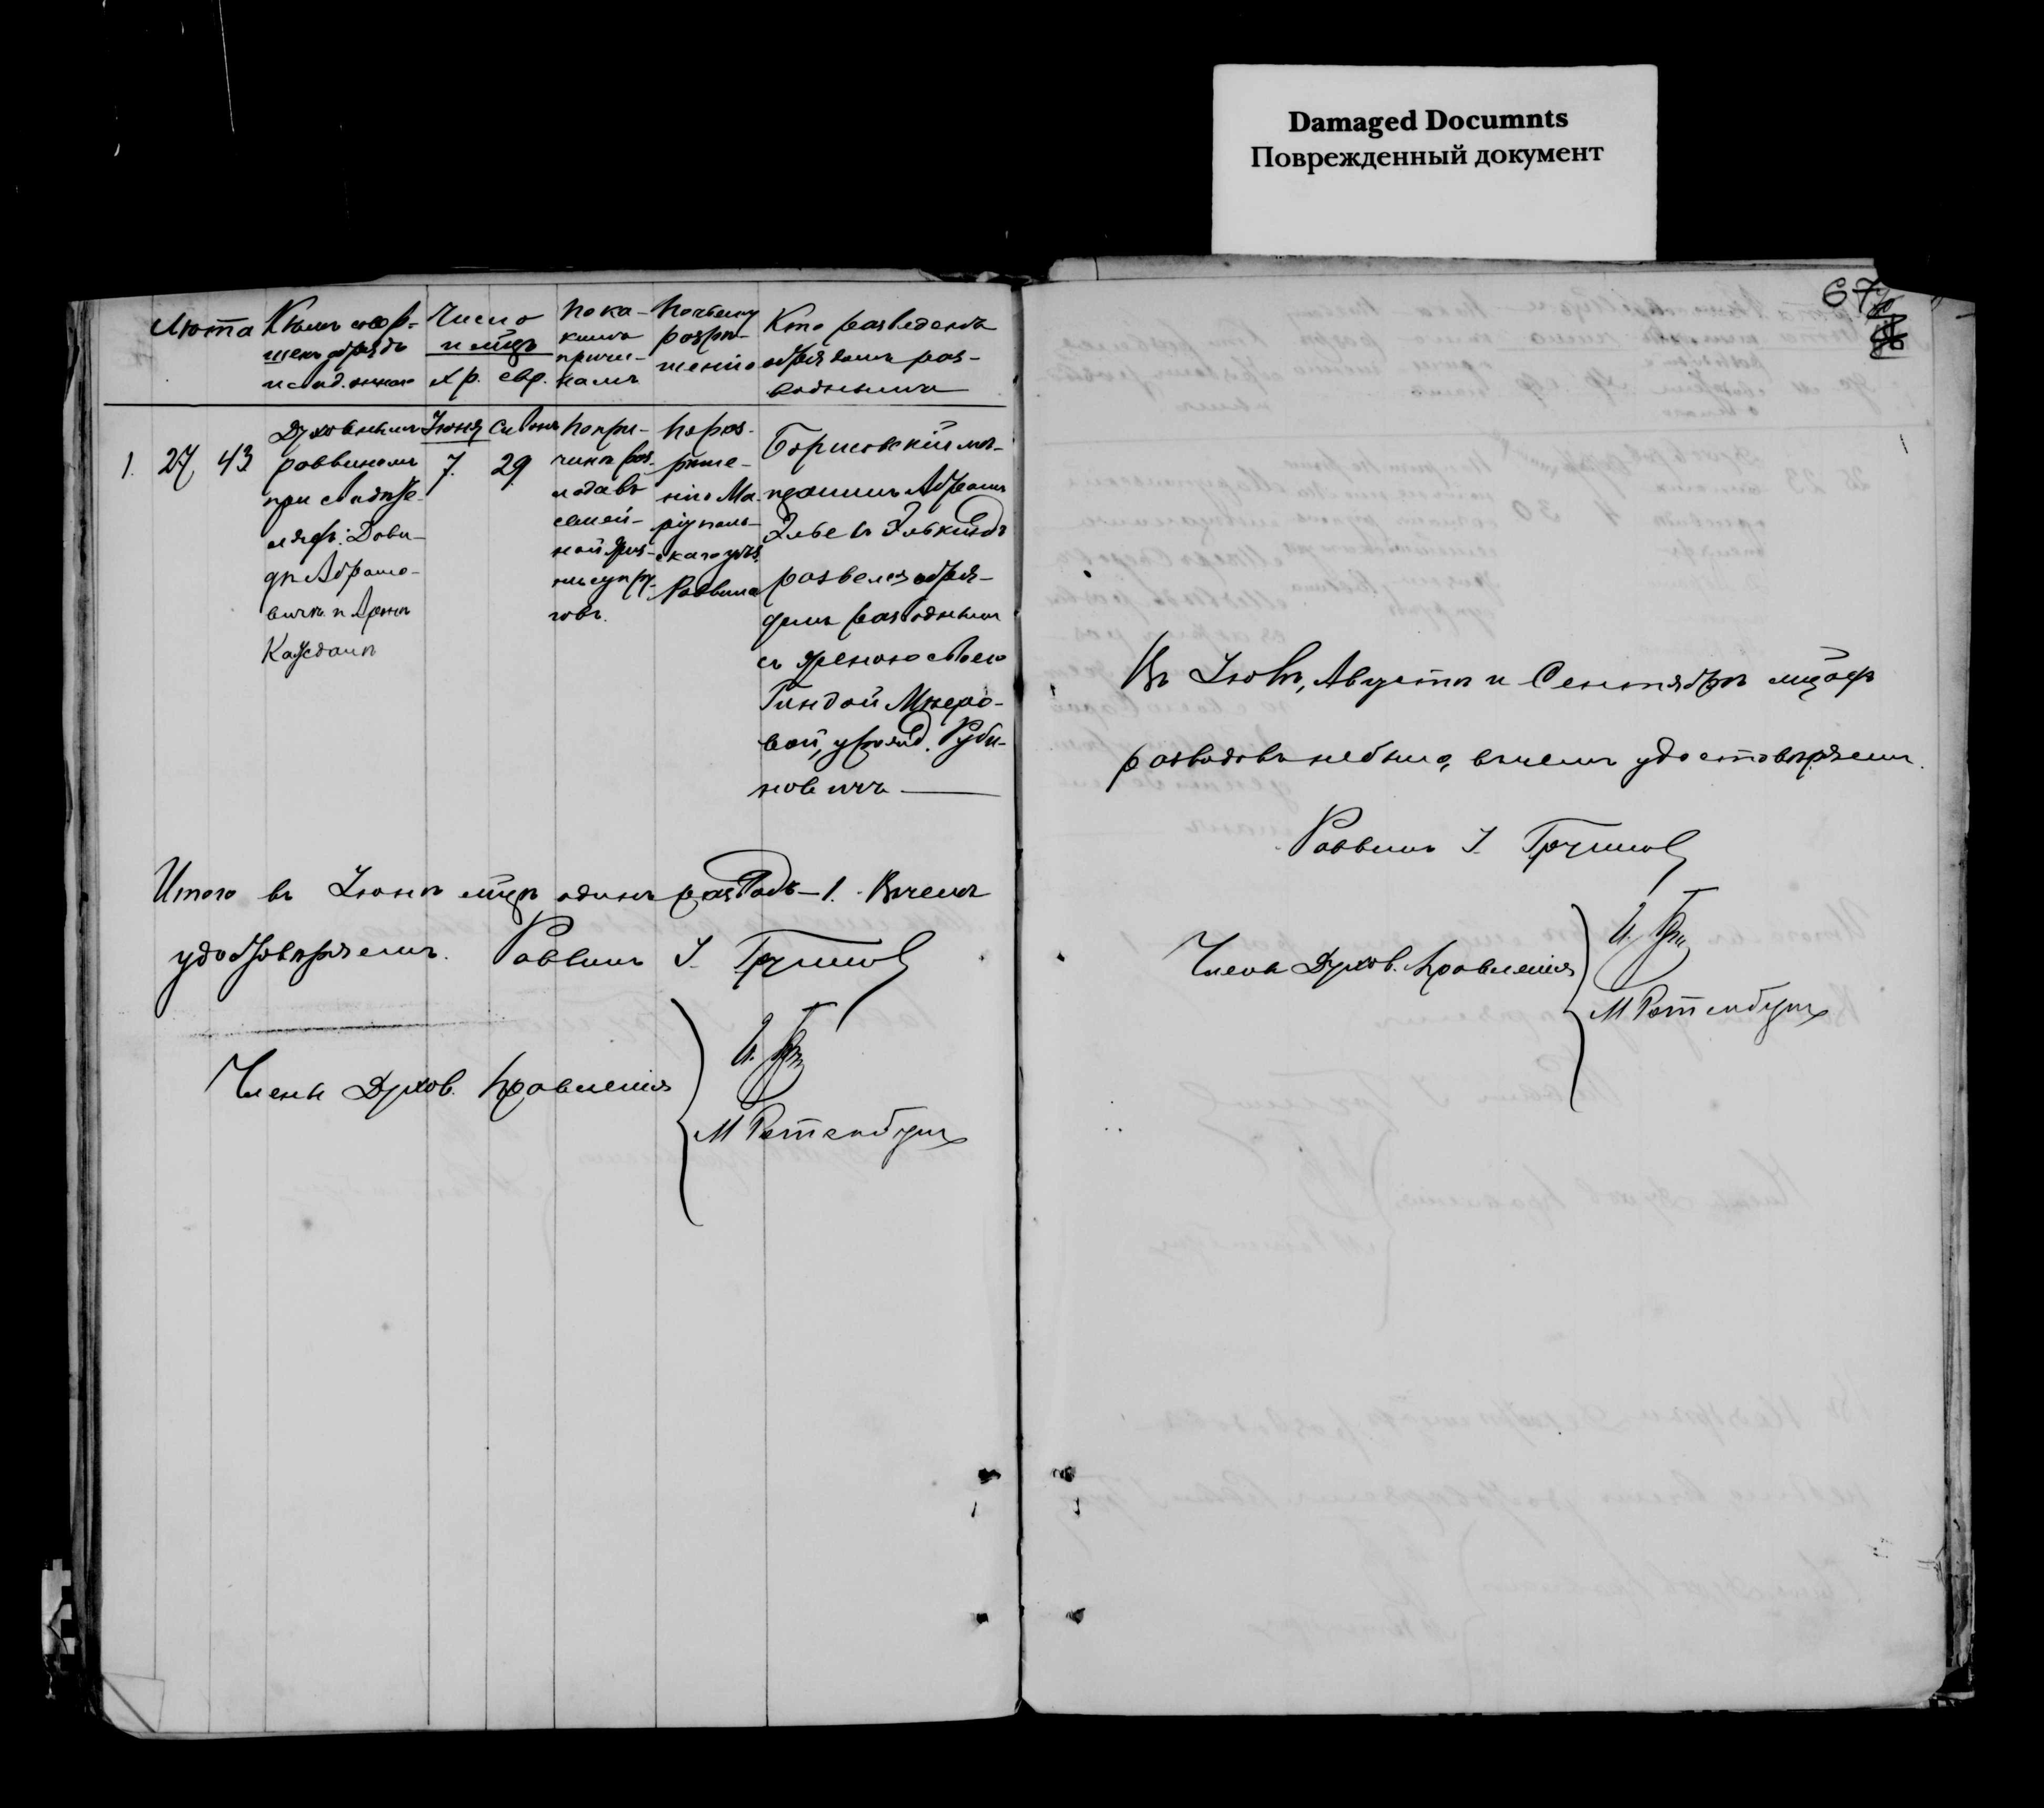 Damaged Documnts
Поврежденный документ
67
Лѣта
Кѣмъ совер-
шенъ обрядъ
Число
и мѣцъ
хр. евр.
по ка-
кимъ
причи-
намъ
по чьему
разрѣ-
шенію
Кто разведенъ
обрядомъ раз-
воднымъ
1. 27 43
Духовнымъ
раввиномъ
при свидѣте-
ляхъ: Дови-
дѣ Абрамо-
вичѣ и Аронѣ
Кажданѣ
Іюня
7.
Сивона
29
по при-
чинѣ раз-
лада въ
семей-
ной жиз-
ни супру-
говъ.
по раз-
рѣше-
нію Ма-
ріуполь-
скаго
Раввина
Борисовскій мѣ-
щанинъ Абрамъ
Элье въ Элькиндъ
развелся обря-
домъ разводнымъ
съ женою своею
Гиндой Мееро-
вой, урожд. Руби-
новичъ
Итого въ Іюнѣ мѣцѣ одинъ разводъ — 1. Въ чемъ
удостовѣряемъ. Раввинъ І.
Члены Духов. Правленія
М Ротенбургъ
Въ Іюлѣ, Августѣ и Сентябрѣ мѣцахъ
разводовъ не было, въ чемъ удостовѣряемъ.
Раввинъ І.
Члены Духов. Правленія
М Ротенбургъ